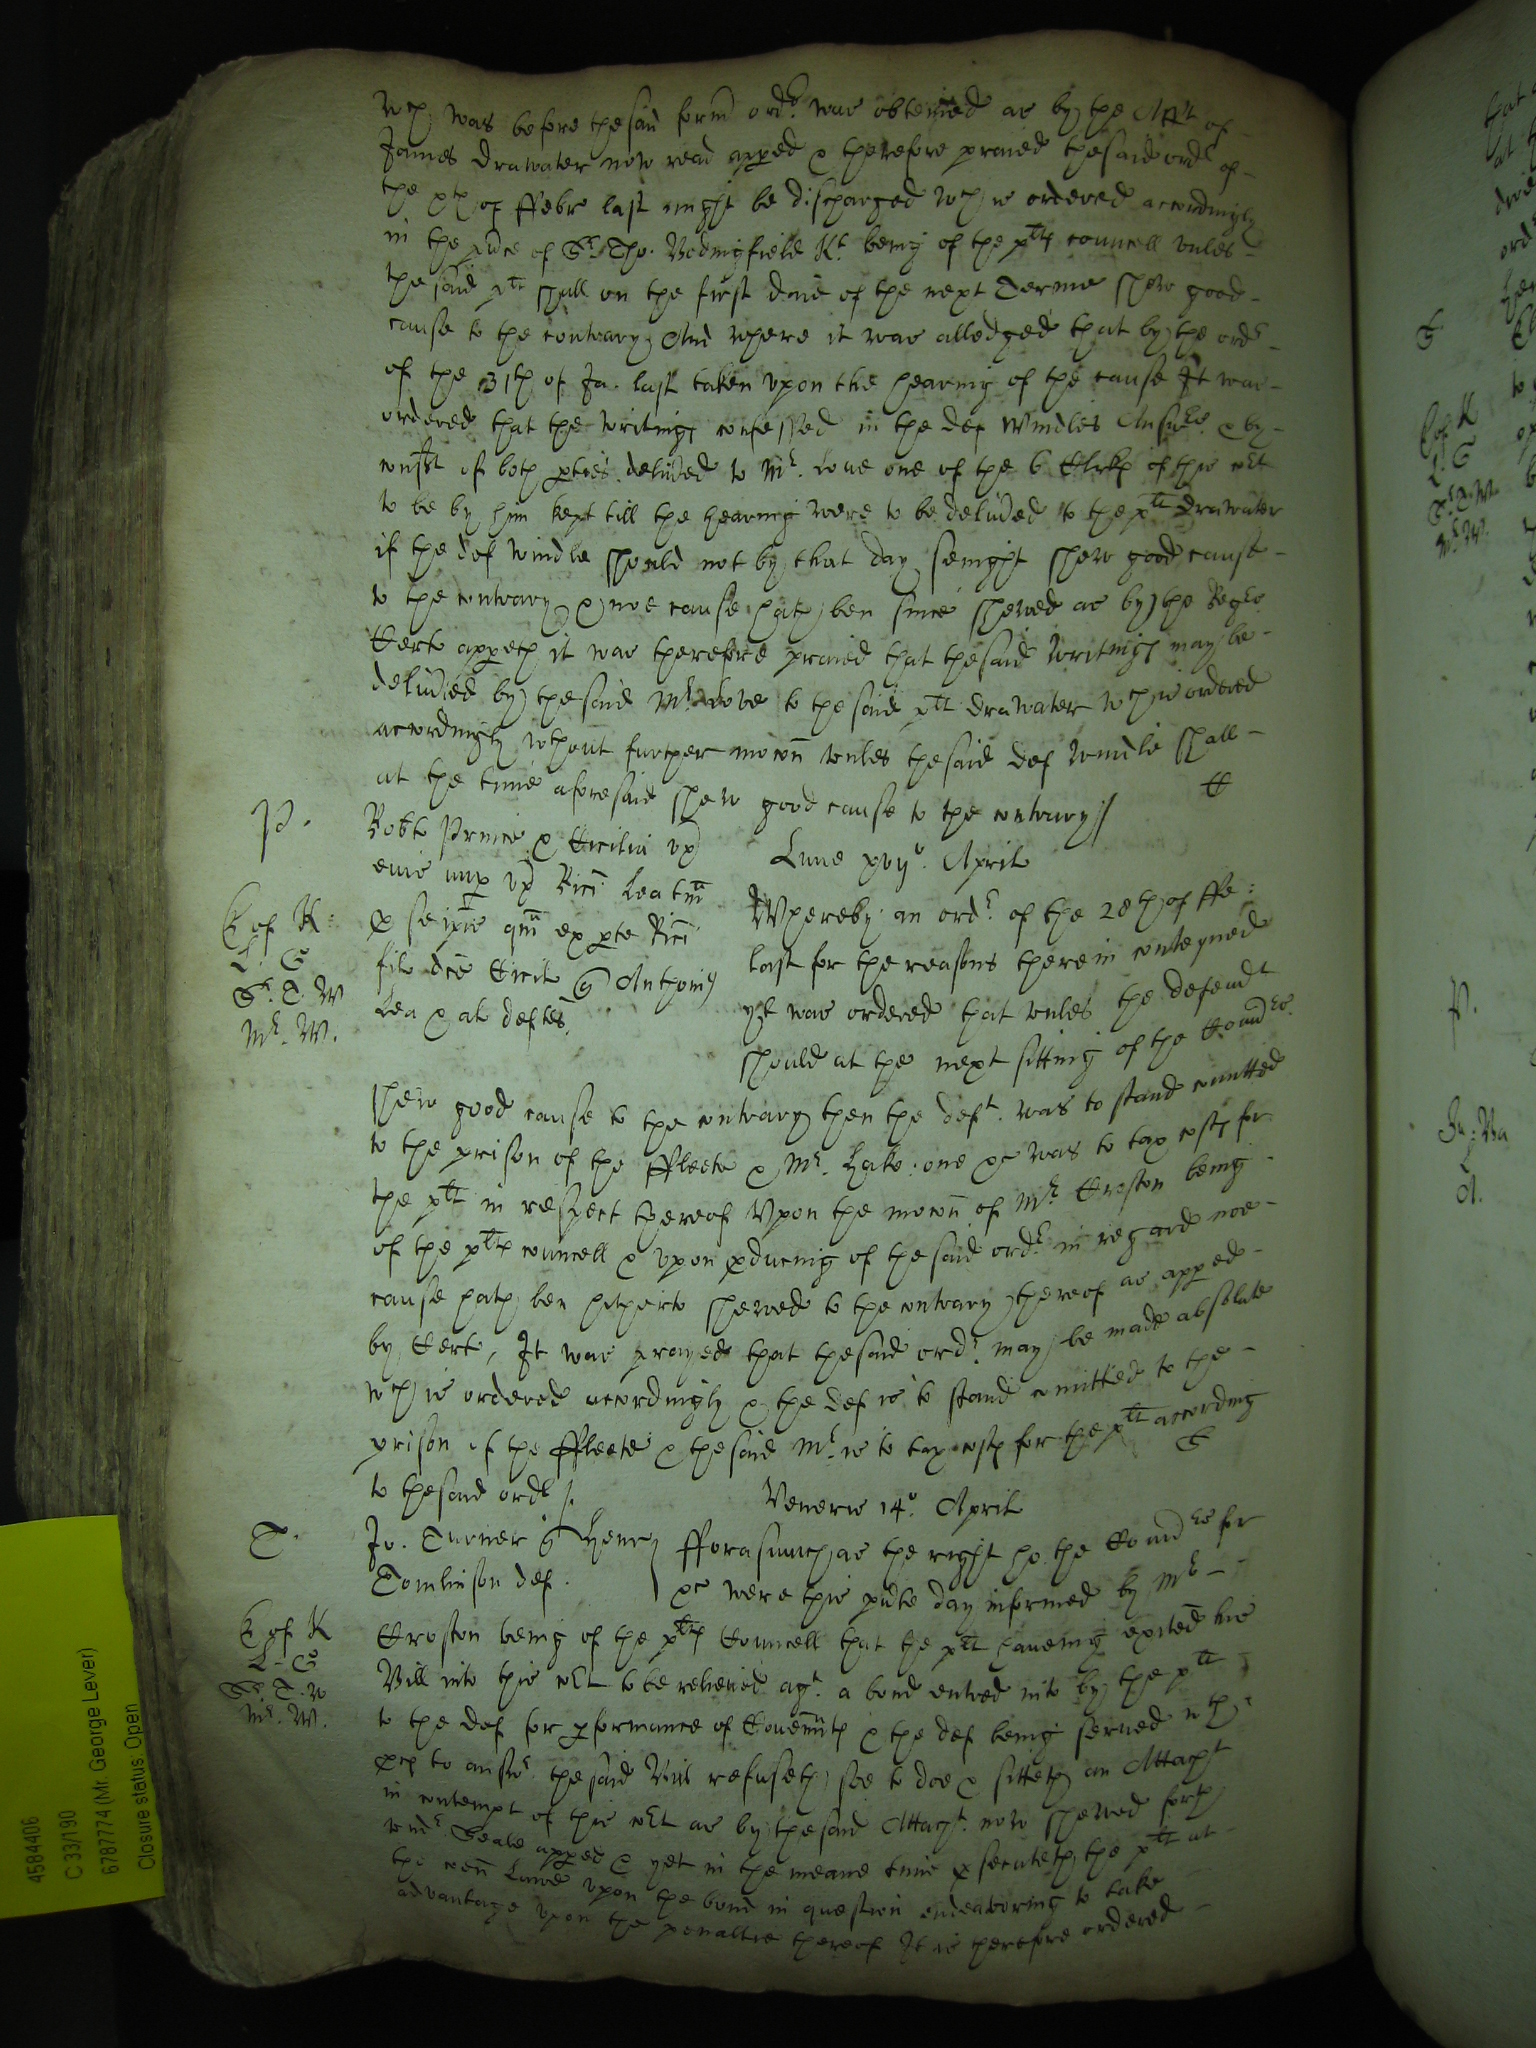 wch was before the said form ordr. was obteined as by the Afft of
James Drawater now read appeð & therefore praied the said ordr of
the xth of ffebr last might be discharged wch is ordered accordingly
in the pñce of Sr. Tho. Bedingfield Kt. being of the pltes councell vnles
the said plt shall on the first daie of the next Terme shew good
cause to the contrary And where it was alledged that by the ordr
of the 31th of Ja. last taken vpon the hearing of the cause It was
ordered that the writings confessed in the def Windles Answere & by
consent of both pties deliũed to Mr. Love one of the 6 Clrks of this cort
to be by him kept till the hearing were to be deliũed to the plt Drawater
if the def Windle should not by that day senight shew good cause
to the contrary & noe cause hath ben since shewed as by the Regrs
Certe appeth it was therefore praied that the said writings may be
deliũed by the said Mr Love to the said plt Drawater wch is ordered
accordingly wthout further mocon vnles the said def Windle shall
at the time aforesaid shew good cause to the contrary //
P.
Robte Prince & Cicilia vx
eius nup vx Rici Lea
& se
filio dce Cicil Anthoniy
Lea & al deftes
C of K:
L. C
Sr. T. W
Mr. W.
Lune xvijo. April
Whereby an ordr. of the 28th of ffe:
last for the reasons therein conteyned
yt was ordered that vnles the defendt
should at the next sitting of the Comrs
shew good cause to the contrary then the deft. was to stand comitted
to the prison of the ffleete & Mr. Hake. one &c was to tax costs for
the plt in respect thereof Vpon the mocon of Mr Croston being
of the pltes councell & vpon pducing of the said ordr in regard noe
cause hath ben hitherto shewed to the contrary thereof as apped
by Certe, It was prayed that the said ordr. may be made absolute
wch is ordered accordingly & the def is to stand comitted to the
prison of the ffleete & the said Mr. is to tax costs for the plt according
to the said ordr /.
T.
Jo. Turner Henry
Tomlinson def.
Veneris 14o. April
fforasmuch as the right ho. the Comrs for
&c were this pñte day informed by Mr
C of K
L. C
Sr. T. W
Mr. W.
Croston being of the pltes Councell that the plt haueing exited his
Bill into this cort to be releiued agt. a bond entred into by the plt
to the def for pformance of Couenñts & the def being serued wth
pces to answr the said Bill refuseth soe to doe & sitteth an Attacht
in contempt of this cort as by the said Attacht. now shewed forth
vndr Seale apped & yet in the meane time psecuteth the plt at
the comon Lawe vpon the bond in question endeavoring to take
advantage vpon the penaltie thereof It is therefore ordered
4584406
C 33/190
6787774 (Mr. George Lever)
Closure status: Open